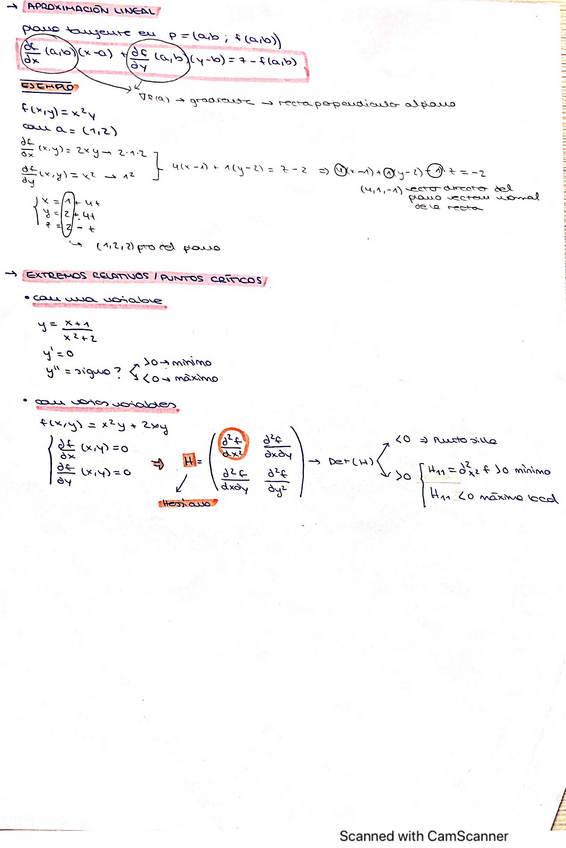 → APROXIMACIÓN LINEAL
plano tangente en p = (a,b ; f(a,b))
∂f/∂x (a,b) (x-a) + ∂f/∂y (a,b) (y-b) = z - f(a,b)
∇f(a) → gradiente → recta perpendicular al plano
EJEMPLO
f(x,y) = x²y
con a = (1,2)
∂f/∂x (x,y) = 2xy → 2·1·2
∂f/∂y (x,y) = x² → 1²
4(x-1) + 1(y-2) = z - 2 ⇒ 4(x-1) + 1(y-2) - 1·z = -2
(4,1,-1) vector director del
plano vector normal
de la recta
x = 1 + 4t
y = 2 + 4t
z = 2 - t
↳ (1,2,2) pto del plano
→ EXTREMOS RELATIVOS / PUNTOS CRÍTICOS
• con una variable
y = x+1 / x²+2
y' = 0
y'' = signo? >0 → mínimo
<0 → máximo
• con varias variables
f(x,y) = x²y + 2xy
∂f/∂x (x,y) = 0
∂f/∂y (x,y) = 0
⇒ H = ( ∂²f/dx² ∂²f/∂x∂y
∂²f/dxdy ∂²f/∂y² ) → Det(H)
<0 ⇒ Punto silla
>0 H₁₁ = ∂²x² f >0 mínimo
H₁₁ <0 máximo local
Hessiano
Scanned with CamScanner